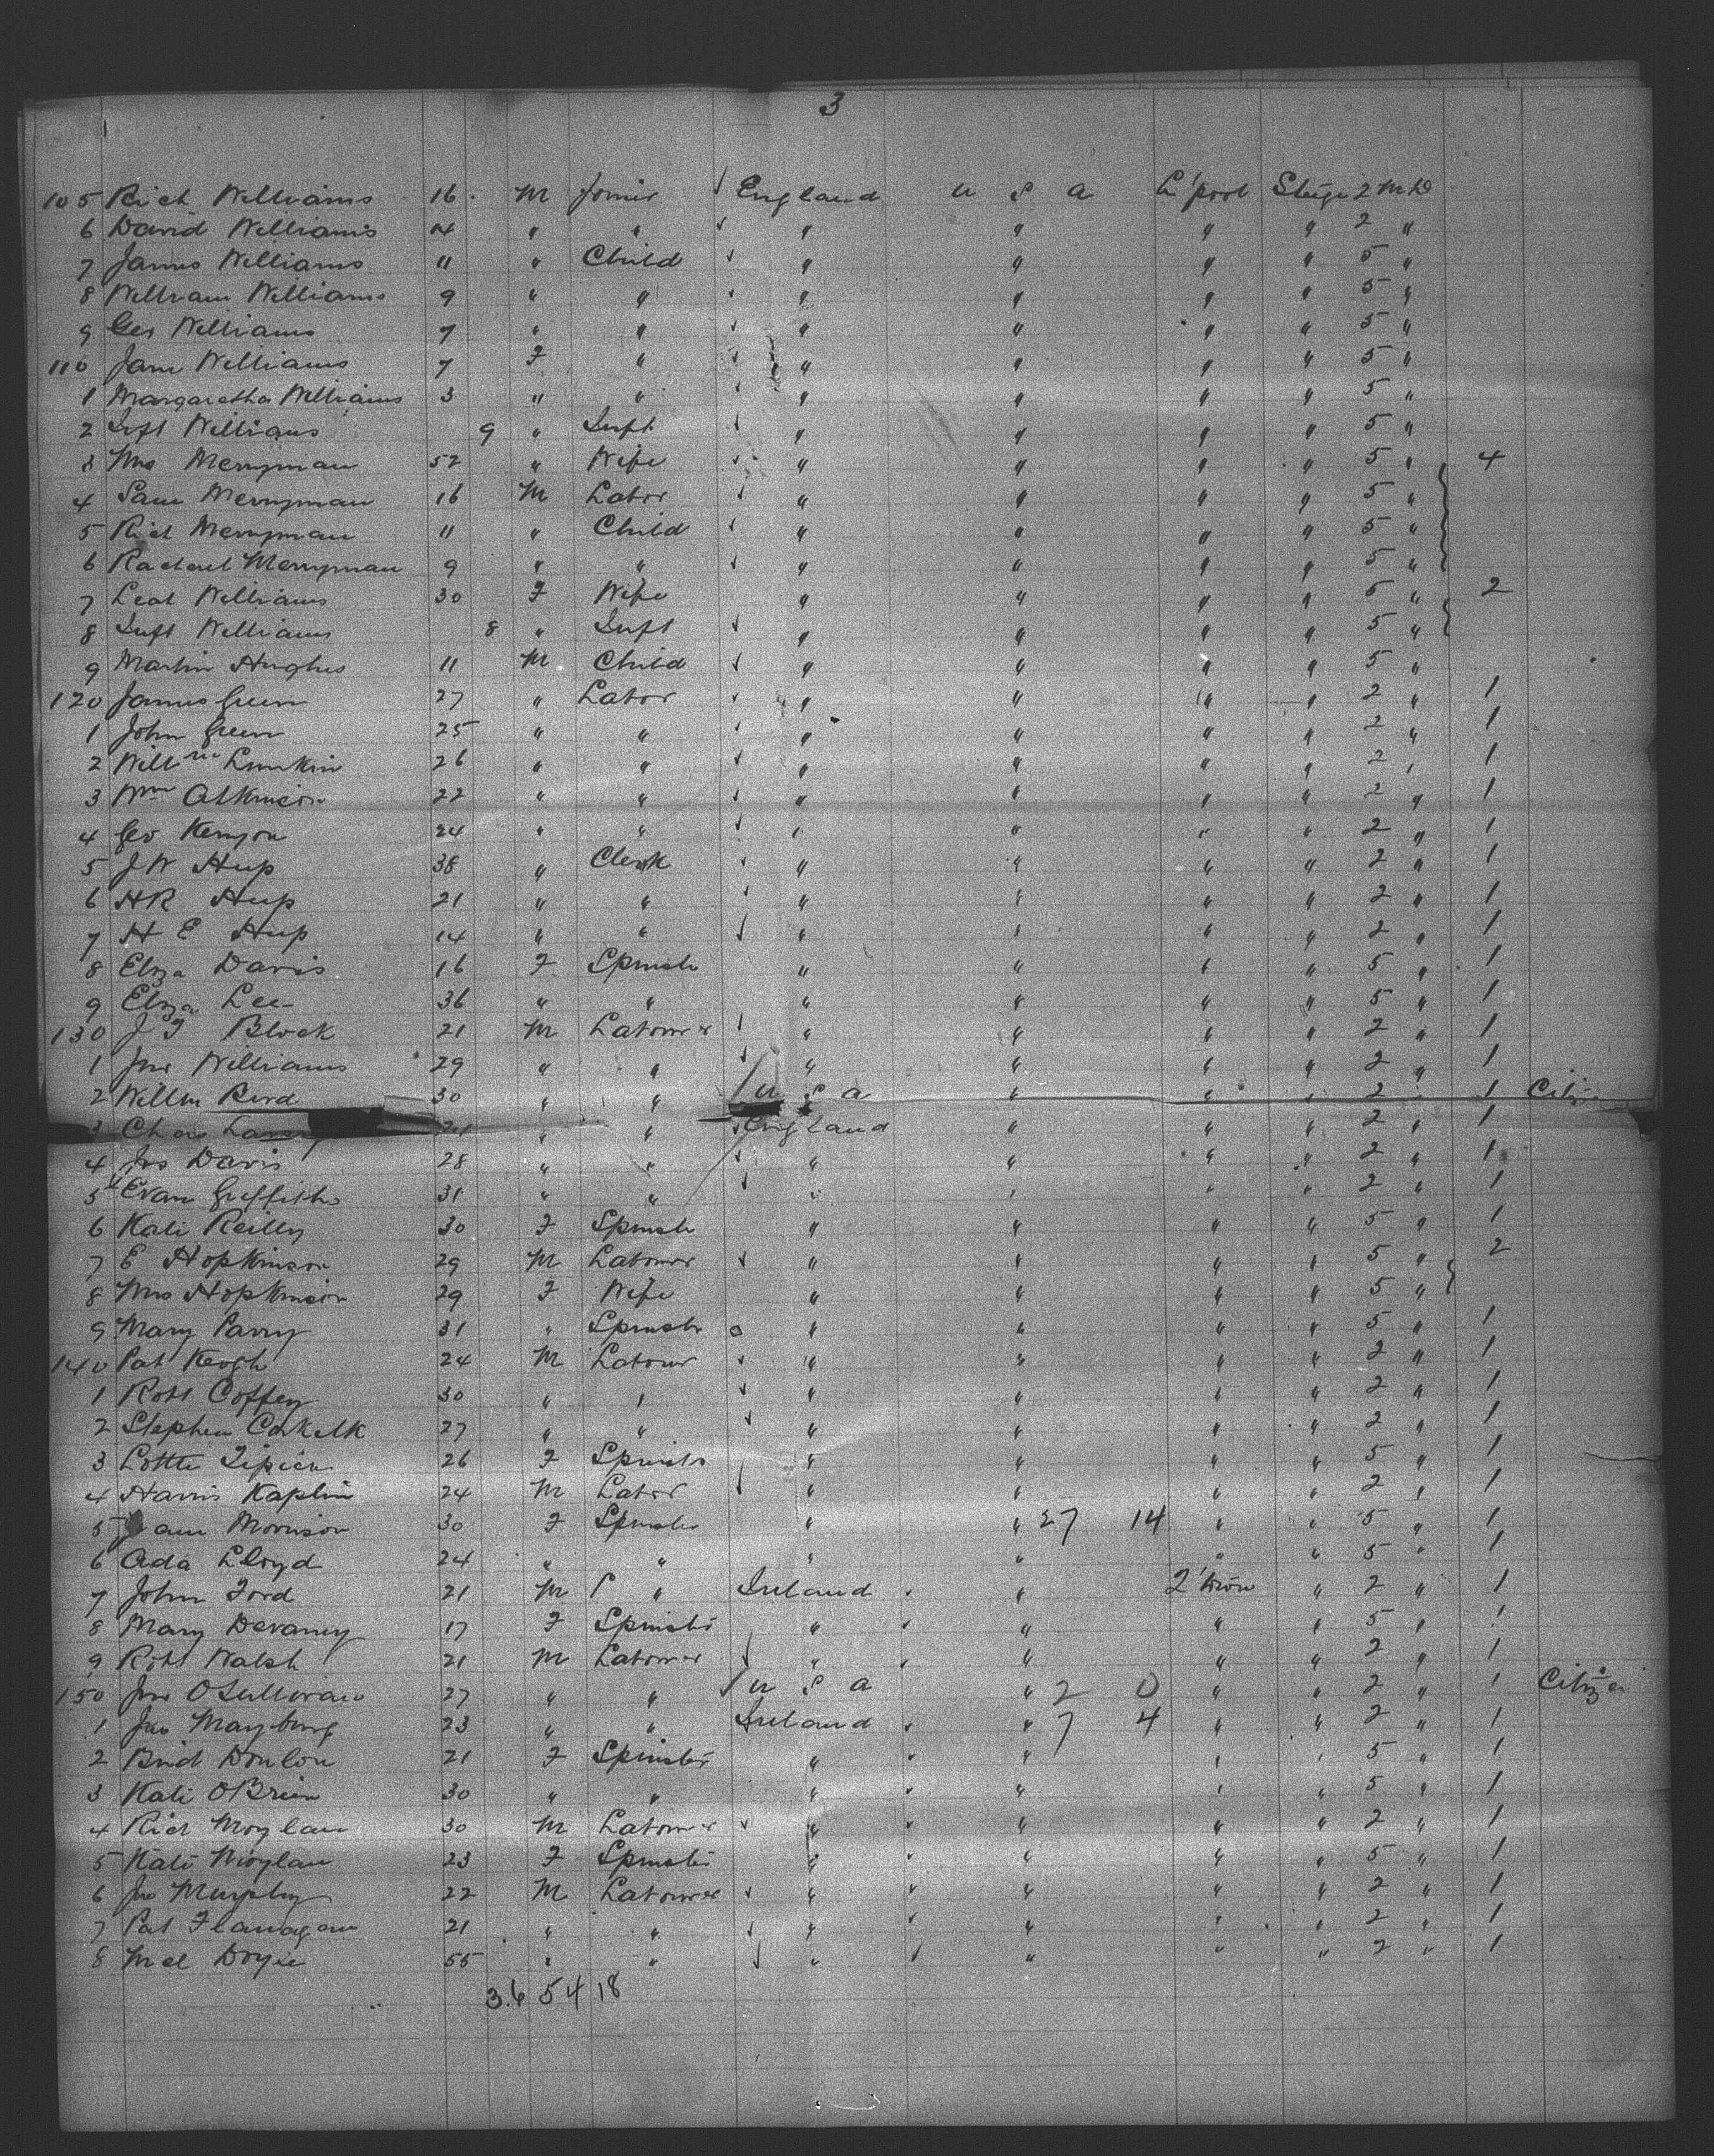 3
105 Rich Williams 16 M Joiner England U S A L'pool Stege 2 M D
6 David Williams 14 " " " " " " 2 "
7 James Williams 11 " Child " " " " 5 "
8 William Williams 9 " " " " " " 5 "
9 Geo Williams 7 " " " " " " 5 "
110 Jane Williams 7 F " " " " " 5 "
1 Margaretha Williams 3 " " " " " " 5 "
2 Inft Williams 9 " Inft " " " " 5 "
3 Mrs Merryman 52 " Wife " " " " 5 " 4
4 Sam Merryman 16 M Labor " " " " 5 "
5 Rich Merryman 11 " Child " " " " 5 "
6 Rachael Merryman 9 " " " " " " 5 "
7 Leah Williams 30 F Wife " " " " 5 " 2
8 Inft Williams 8 " Inft " " " " 5 "
9 Martin Hughes 11 M Child " " " " 5 "
120 James Green 27 " Labor " " " " 2 " 1
1 John Green 25 " " " " " " 2 " 1
2 Willm Lumkin 26 " " " " " " 2 " 1
3 Wm Atkinson 22 " " " " " " 2 " 1
4 Geo Kenyon 24 " " " " " " 2 " 1
5 J W Hup 38 " Clerk " " " " 2 " 1
6 H R Hup 21 " " " " " " 2 " 1
7 H E Hup 14 " " " " " " 2 " 1
8 Eliza Davis 16 F Spinste " " " " 5 " 1
9 Eliza Lee 36 " " " " " " 5 " 1
130 J F Block 21 M Labourer " " " " 2 " 1
1 Jno Williams 29 " " " " " " 2 " 1
2 Willm Bird 30 " " U S A " " " 2 " 1
3 Chas " " England " " " 2 " 1
4 Jos Davis 28 " " " " " " 2 " 1
5 Evan Griffiths 31 " " " " " " 2 " 1
6 Kate Reilly 30 F Spinste " " " " 5 " 1
7 E Hopkinson 29 M Labourer " " " " 5 " 2
8 Mrs Hopkinson 29 F Wife " " " " 5 "
9 Mary Parry 31 " Spinster " " " " 5 " 1
140 Pat Keogh 24 M Labour " " " " 2 " 1
1 Robt Coffey 30 " " " " " " 2 " 1
2 Stephen 27 " " " " " " 2 " 1
3 Lotte 26 F Spinster " " " " 5 " 1
4 Harris Kaplin 24 M Labor " " " " 2 " 1
5 Jane Morrison 30 F Spinster " " 27 14 " " 5 " 1
6 Ada Lloyd 24 " " " " " " 5 " 1
7 John Ford 21 M " Ireland " 2'town " 2 " 1
8 Mary Devaney 17 F Spinster " " " " 5 " 1
9 Robt Walsh 21 M Labourer " " " " 2 " 1
150 Jno O'Sullivan 27 " " U S A " 2 0 " " 2 " 1 Citizen
1 Jno Mayburg 23 " " Ireland " 7 4 " " 2 " 1
2 Brid Donlon 21 F Spinster " " " " 5 " 1
3 Kate OBrien 30 " " " " " " 5 " 1
4 Rich Moylan 30 M Labourer " " " " 2 " 1
5 Kate Moylan 23 F Spinster " " " " 5 " 1
6 Jno Murphy 22 M Labourer " " " " 2 " 1
7 Pat Flanagan 21 " " " " " " 2 " 1
8 Mcl Doyle 55 " " " " " " 2 " 1
3.6 54 18